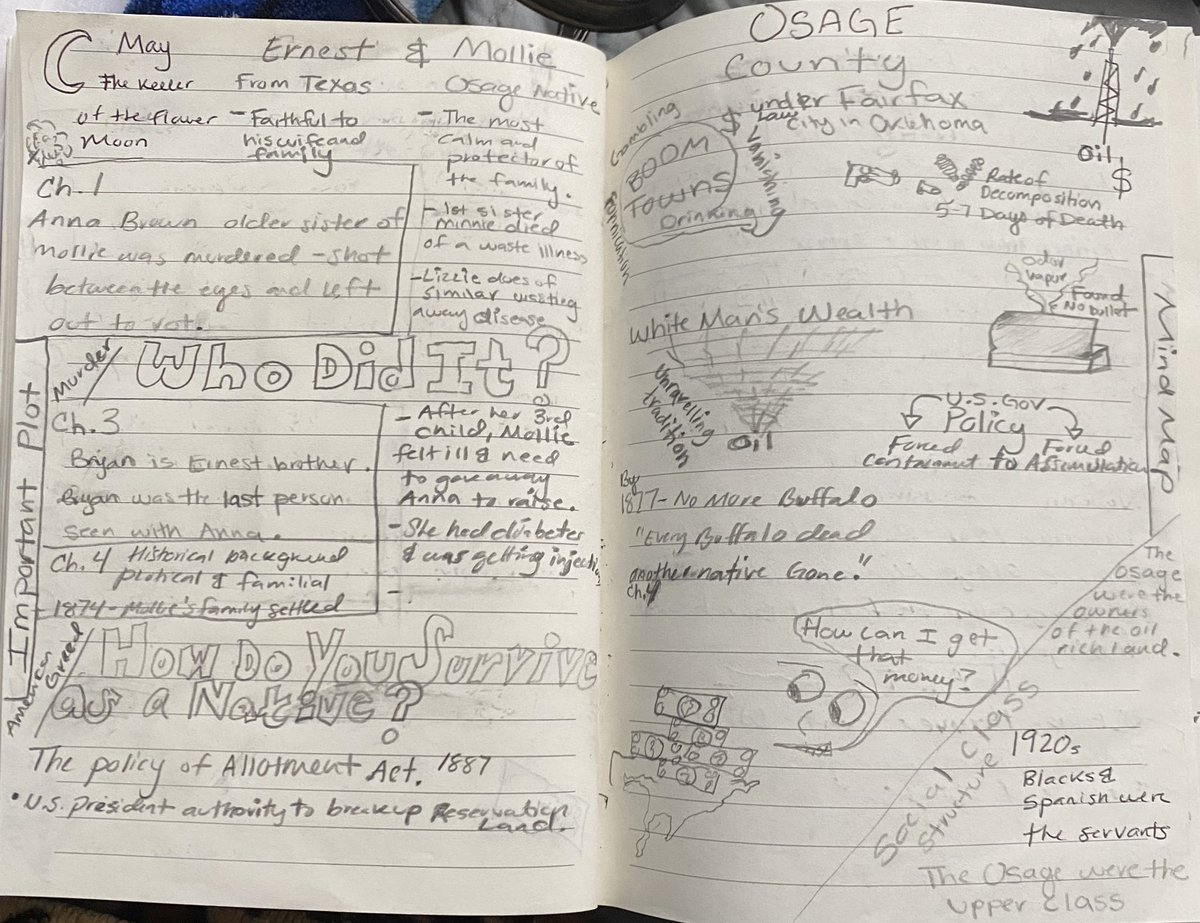 May
The Keeper
of the Flower
Moon
Ernest & Mollie
From Texas
- Faithful to
his wife and
family
Osage Native
- The most
calm and
protector of
the family.
- 1st sister
minnie died
of a waste illness
- Lizzie dies of
similar wasting
away disease
Ch. 1
Anna Brown older sister of
Mollie was murdered - shot
between the eyes and left
out to rot.
Important Plot
Murder/
Who Did It?
Ch. 3
Bryan is Ernest brother.
Bryan was the last person
seen with Anna.
Ch. 4 Historical background
political & familial
1874 - Mollie's family settled
- After her 3rd
child, Mollie
felt ill & need
to give away
Anna to raise.
- She had diabetes
& was getting injections
-
American Greed/
How Do You Survive
as a Native?
The policy of Allotment Act. 1887
• U.S. president authority to breakup Reservation
Land.
OSAGE
County
under Fairfax
City in Oklahoma
Oil
$
Gambling
$
Law Vanishing
BOOM
Towns
Drinking
Fornication
Rate of
Decomposition
5-7 Days of Death
odor
vapor
Found
No bullet
White Man's Wealth
Unravelling
tradition
Oil
Mind Map
U.S. Gov
Policy
Forced Forced
Containment to Assimilation
By
1877 - No More Buffalo
"Every Buffalo dead
another native Gone."
Ch. 4
How can I get
that
money?
The
Osage
were the
owners
of the oil
rich land.
Social Class
Structure
1920s
Blacks &
Spanish were
the servants
The Osage were the
upper class